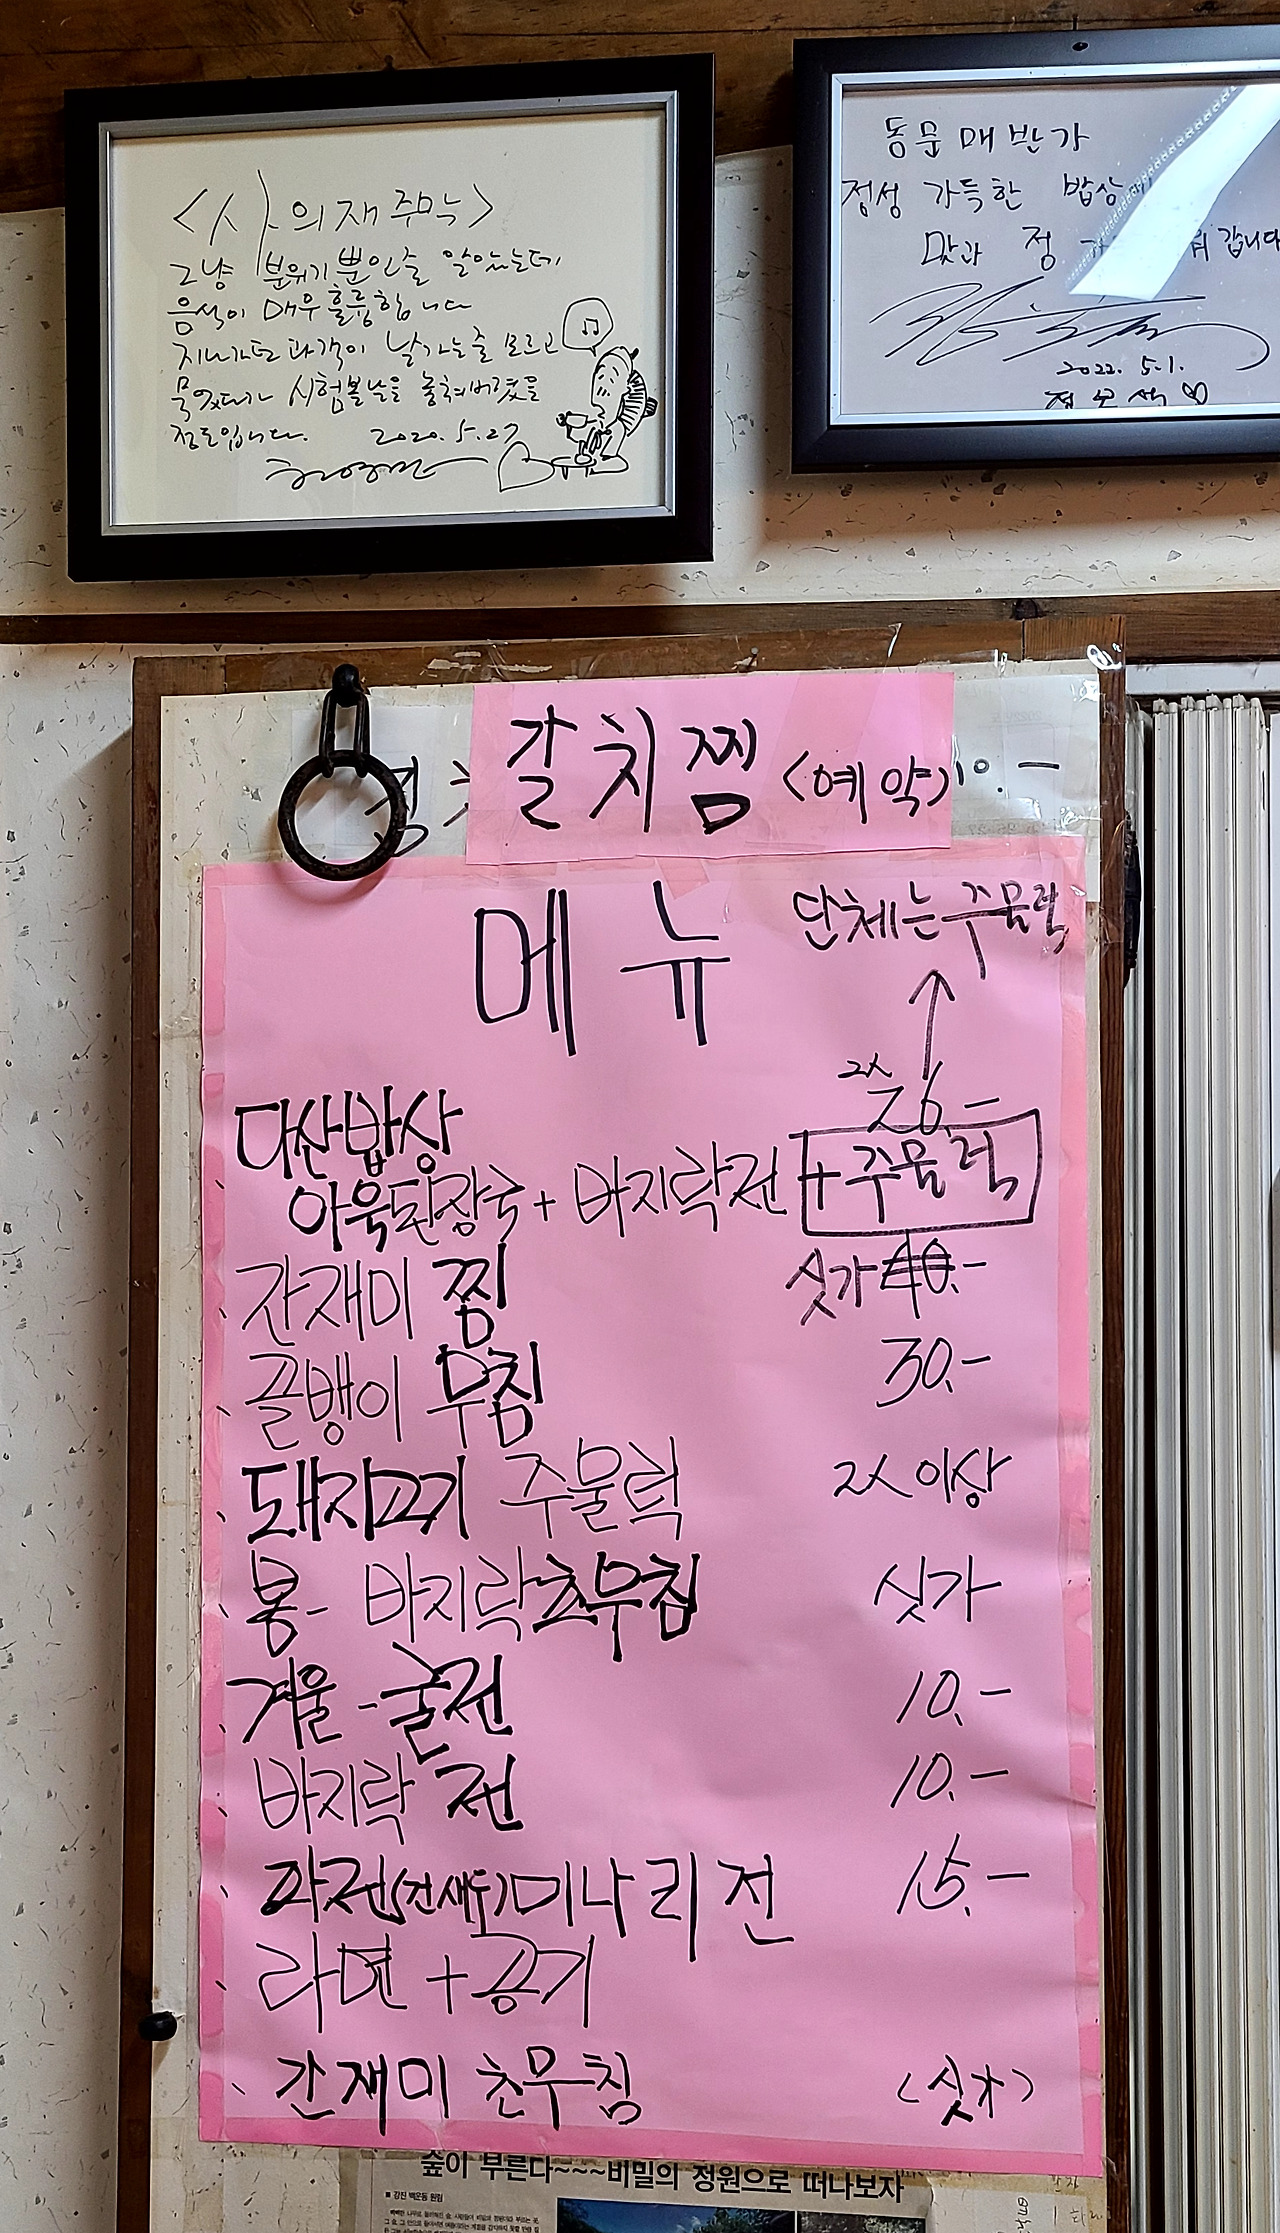 <사의재 주막>
그냥 분위기 뿐인줄 알았는데
음식이 매우 훌륭합니다
지나가던 과객이 날가는줄 모르고
묵었다가 시험볼날을 놓쳐버렸을
정도입니다. 2020.5.27
동문매반가
정성 가득한 밥상
맛과 정 갑니다
2022. 5.1.
갈치찜 <예약>
메뉴
단체는 주물럭
2人
26.-
다산밥상
아욱된장국 + 바지락전 + 주물럭
간재미 찜 싯가 40.-
골뱅이 무침 30.-
돼지고기 주물럭 2人 이상
봄- 바지락초무침 싯가
겨울-굴전 10.-
바지락 전 10.-
파전(건새우)미나리전 15.-
라면+공기
간재미 초무침 (싯가)
숲이 부른다~~~비밀의 정원으로 떠나보자
■ 강진 백운동 원림